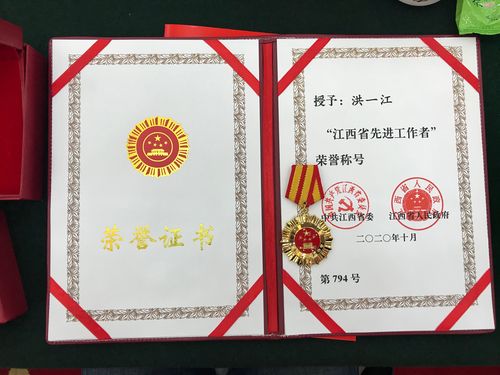 荣誉证书
授予：洪一江
“江西省先进工作者”
荣誉称号
中共江西省委 江西省人民政府
二〇二〇年十月
第 794 号